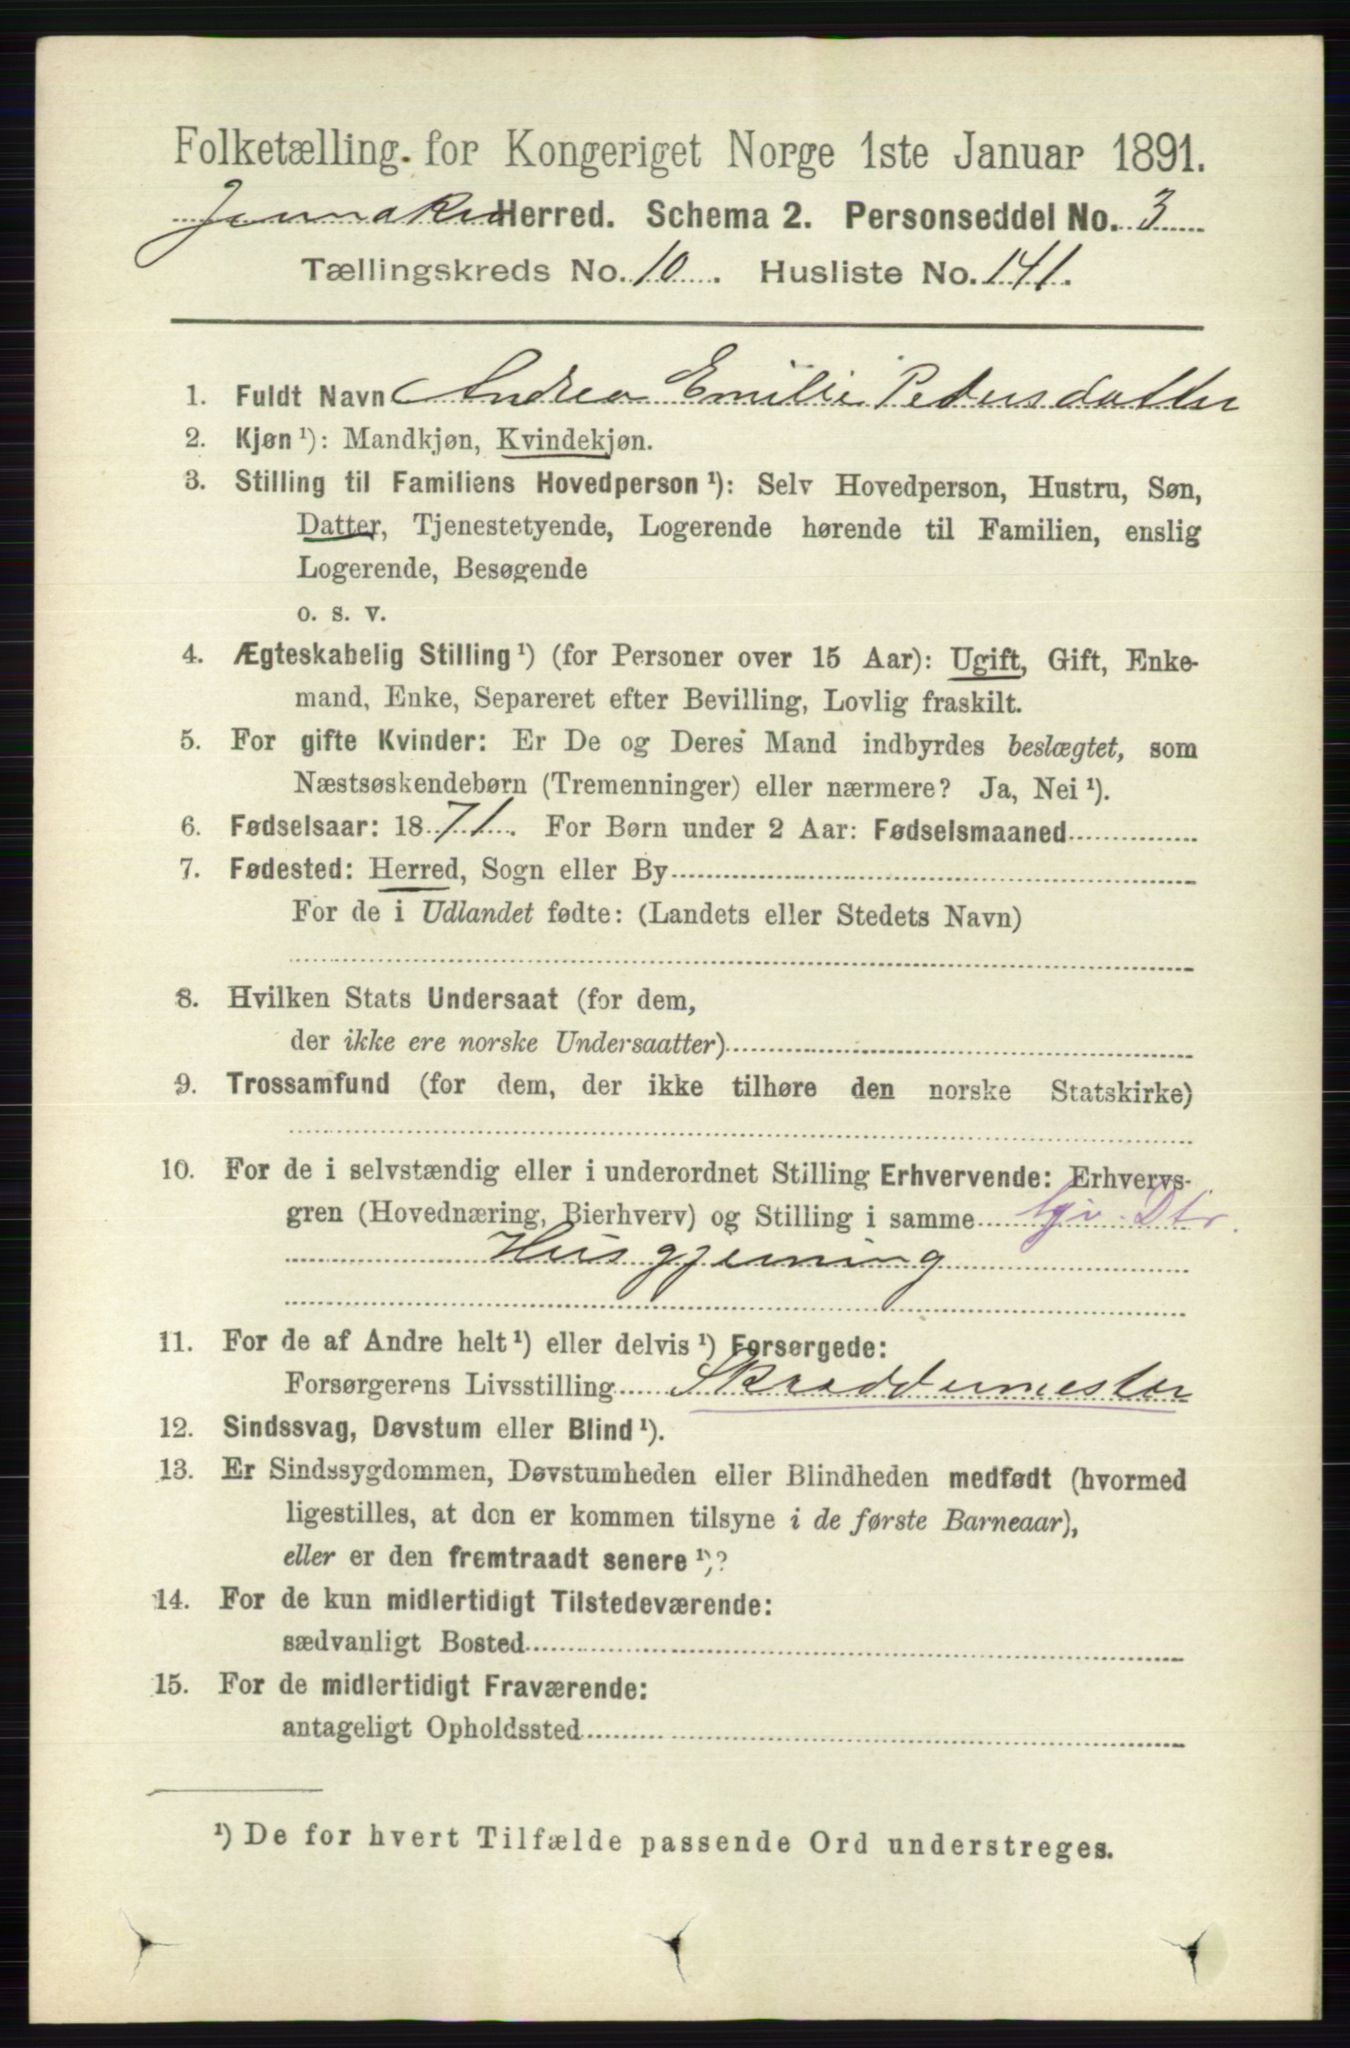 Folketælling for Kongeriget Norge 1ste Januar 1891.
Jevnaker Herred. Schema 2. Personseddel No. 3
Tællingskreds No. 10. Husliste No. 141.
1. Fuldt Navn Andrea Emilie Pedersdatter
2. Kjøn ¹): Mandkjøn, Kvindekjøn.
3. Stilling til Familiens Hovedperson ¹): Selv Hovedperson, Hustru, Søn,
Datter, Tjenestetyende, Logerende hørende til Familien, enslig
Logerende, Besøgende
o. s. v.
4. Ægteskabelig Stilling ¹) (for Personer over 15 Aar): Ugift, Gift, Enke-
mand, Enke, Separeret efter Bevilling, Lovlig fraskilt.
5. For gifte Kvinder: Er De og Deres Mand indbyrdes beslægtet, som
Næstsøskendebørn (Tremenninger) eller nærmere? Ja, Nei ¹).
6. Fødselsaar: 1871. For Børn under 2 Aar: Fødselsmaaned
7. Fødested: Herred, Sogn eller By
For de i Udlandet fødte: (Landets eller Stedets Navn)
8. Hvilken Stats Undersaat (for dem,
der ikke ere norske Undersaatter)
9. Trossamfund (for dem, der ikke tilhøre den norske Statskirke)
10. For de i selvstændig eller i underordnet Stilling Erhvervende: Erhvervs-
gren (Hovednæring, Bierhverv) og Stilling i samme Dtr.
Husgjerning
11. For de af Andre helt ¹) eller delvis ¹) Forsørgede:
Forsørgerens Livsstilling Skræddermester
12. Sindssvag, Døvstum eller Blind ¹).
13. Er Sindssygdommen, Døvstumheden eller Blindheden medfødt (hvormed
ligestilles, at den er kommen tilsyne i de første Barneaar),
eller er den fremtraadt senere ¹)?
14. For de kun midlertidigt Tilstedeværende:
sædvanligt Bosted
15. For de midlertidigt Fraværende:
antageligt Opholdssted
¹) De for hvert Tilfælde passende Ord understreges.